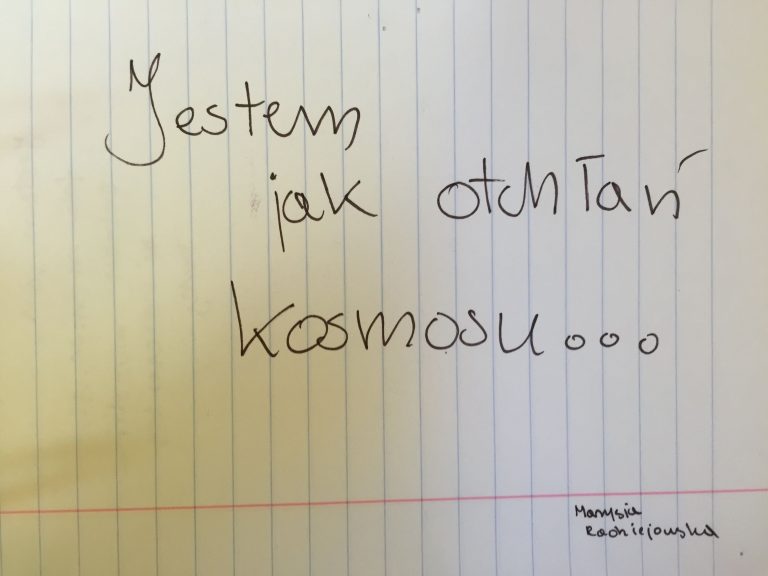 Jestem
jak otchłań
kosmosu...
Marysia
Radziejowska